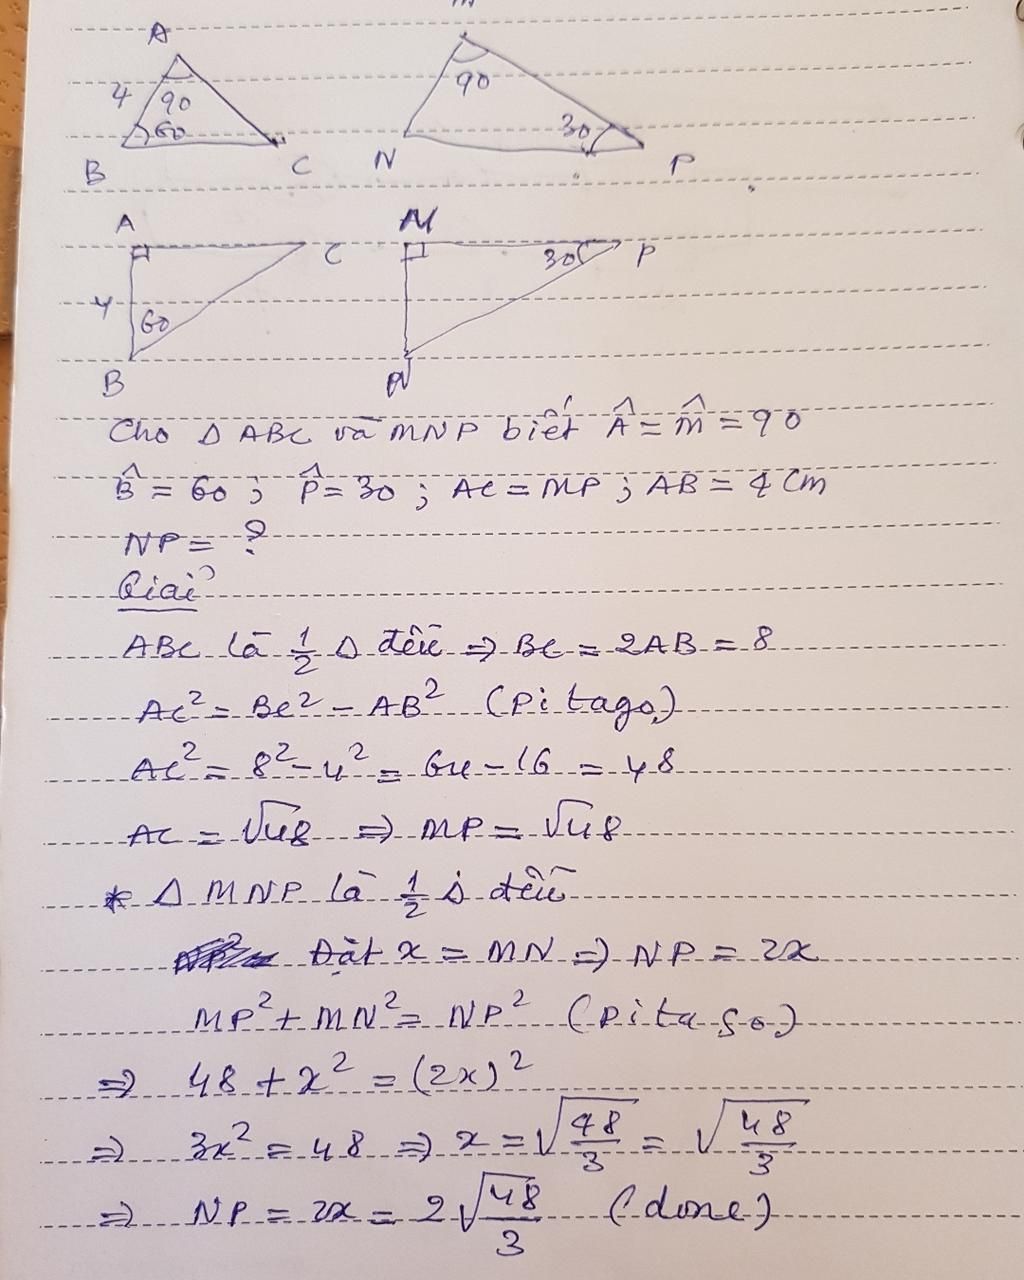 A
4
90
60
B
C
M
90
30
N
P
A
C
4
60
B
M
30
P
N
Cho Δ ABC và MNP biết Â = m̂ = 90
B̂ = 60 ; P̂ = 30 ; AC = MP ; AB = 4 Cm
NP = ?
Giải
ABC là 1/2 Δ đều ⇒ BC = 2AB = 8
AC² = BC² - AB² (Pitago)
AC² = 8² - 4² = 64 - 16 = 48
AC = √48 ⇒ MP = √48
* Δ MNP là 1/2 Δ đều
Đặt x = MN ⇒ NP = 2x
MP² + MN² = NP² (Pitago)
⇒ 48 + x² = (2x)²
⇒ 3x² = 48 ⇒ x = √(48/3) = √(48/3)
⇒ NP = 2x = 2√(48/3) (done)